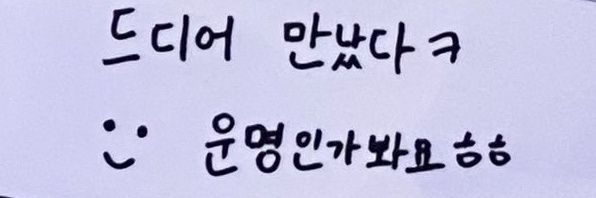 드디어 만났다ㅋ
:) 운명인가봐요ㅎㅎ